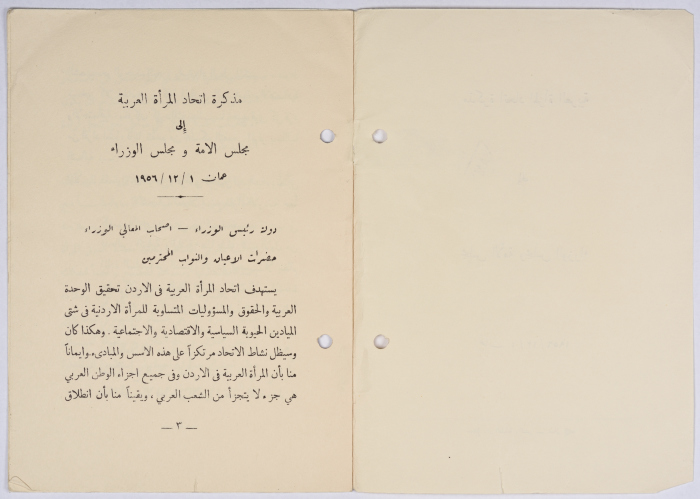 مذكرة اتحاد المرأة العربية
إلى
مجلس الامة و مجلس الوزراء
عمان ١ / ١٢ / ١٩٥٦
دولة رئيس الوزراء — اصحاب المعالي الوزراء
حضرات الاعيان والنواب المحترمين
يستهدف اتحاد المرأة العربية فى الاردن تحقيق الوحدة
العربية والحقوق والمسؤوليات المتساوية للمرأة الاردنية فى شتى
الميادين الحيوية السياسية والاقتصادية والاجتماعية . وهكذا كان
وسيظل نشاط الاتحاد مرتكزاً على هذه الاسس والمبادىء وايماناً
منا بأن المرأة العربية فى الاردن وفى جميع اجزاء الوطن العربي
هي جزء لا يتجزأ من الشعب العربي ، ويقيناً منا بأن انطلاق
— ٣ —